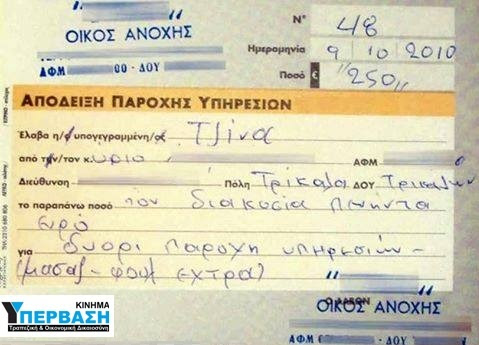 ΟΙΚΟΣ ΑΝΟΧΗΣ
ΑΦΜ 00 - ΔΟΥ
Ν° 48
Ημερομηνία 9 10 2010
Ποσό € "250,,
ΑΠΟΔΕΙΞΗ ΠΑΡΟΧΗΣ ΥΠΗΡΕΣΙΩΝ
Έλαβα η/ο υπογεγραμμένη/ος Τζίνα
από την/τον κύριο ΑΦΜ
Διεύθυνση Πόλη Τρίκαλα ΔΟΥ Τρικάλων
το παραπάνω ποσό των διακόσια πενήντα
ευρώ
για δύορι παροχή υπηρεσιών -
(μασάζ - φουλ έχτρα)
Ο ΛΑΒΩΝ
ΟΙΚΟΣ ΑΝΟΧΗΣ
ΑΦΜ 0 - ΔΟΥ
ΤΗΛ: 2310 680 806
ΚΙΝΗΜΑ
ΥΠΕΡΒΑΣΗ
Τραπεζική & Οικονομική Δικαιοσύνη